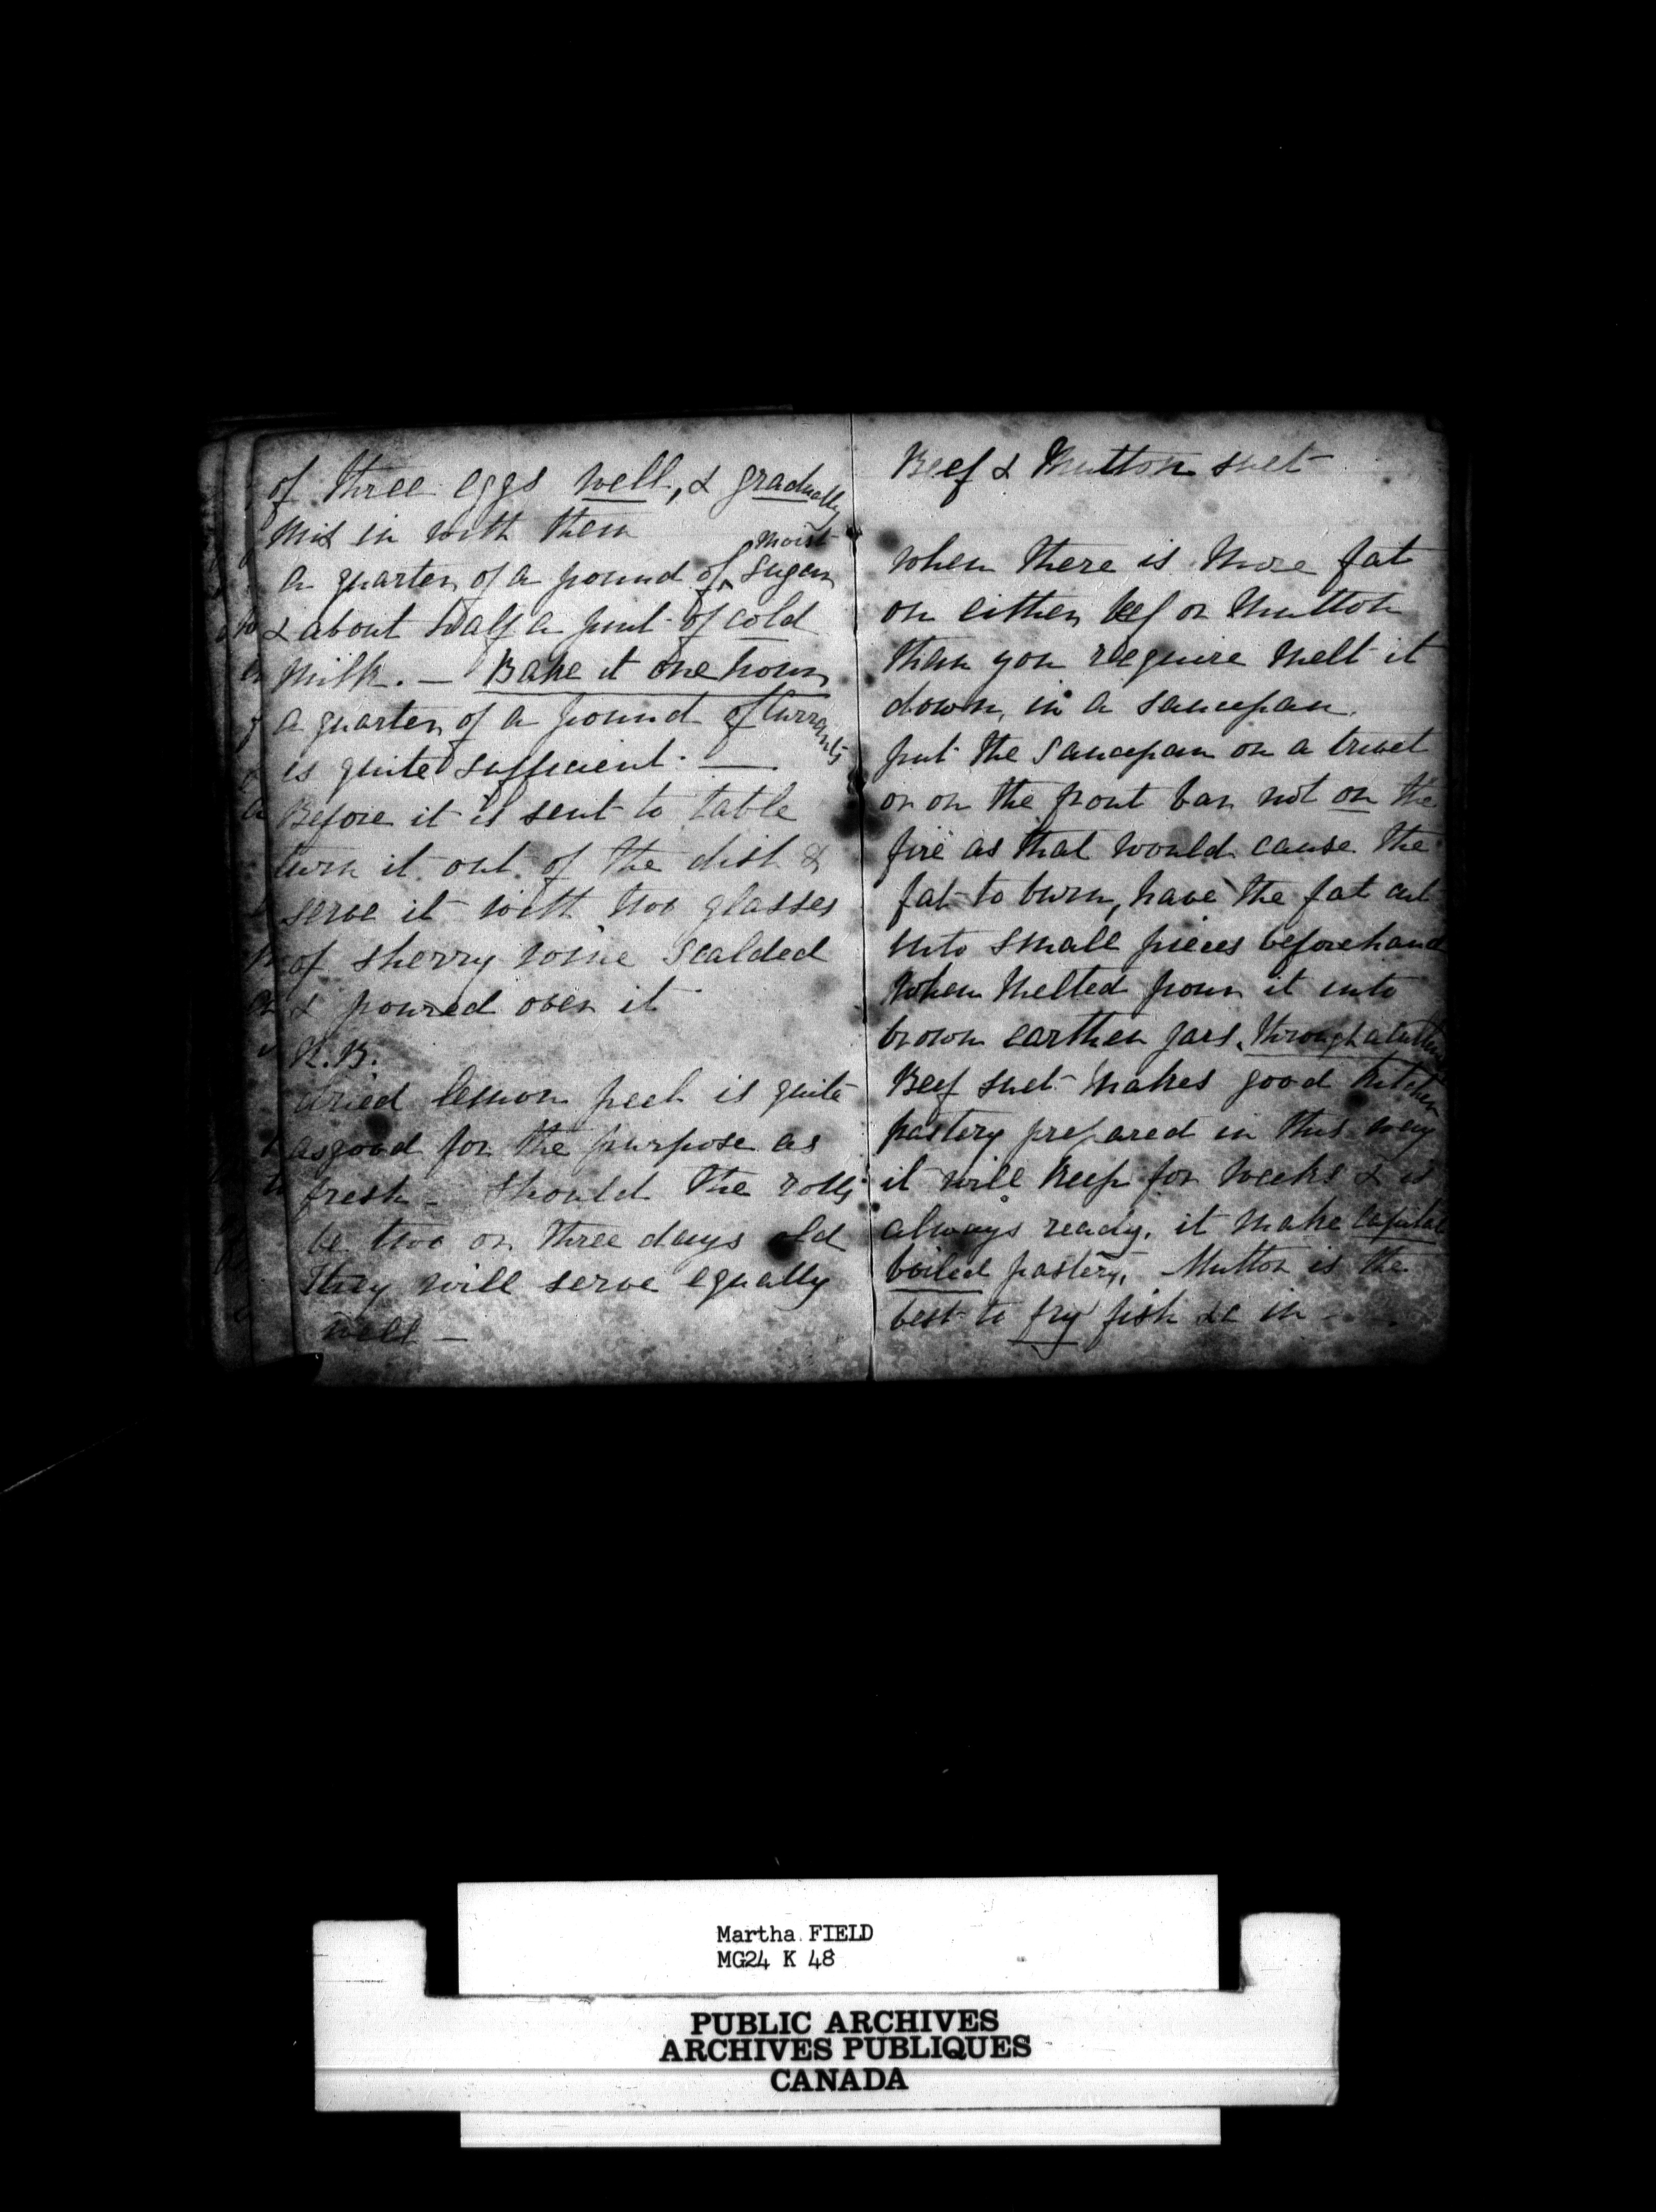 of three eggs well, & gradually
mix in with them
a quarter of a pound of moist sugar
& about half a pint of cold
milk. — Bake it one hour
a quarter of a pound of currants
is quite sufficient. —
Before it is sent to table
turn it out of the dish &
serve it with two glasses
of sherry wine scalded
& poured over it
N.B.
dried lemon peel is quite
as good for the purpose as
fresh - should the rolls
be two or three days old
They will serve equally
well —
Beef & Mutton suet
when there is more fat
on either beef or mutton
than you require melt it
down, in a saucepan.
put the saucepan on a trivet
or on the front bar not on the
fire as that would cause the
fat to burn, have the fat cut
into small pieces beforehand
When melted pour it into
brown earthen jars. through a
Beef suet makes good kitchen
pastery prepared in this way
it will keep for weeks & is
always ready. it make capital
boiled pastery, Mutton is the
best to fry fish &c in
Martha FIELD
MG24 K 48
PUBLIC ARCHIVES
ARCHIVES PUBLIQUES
CANADA